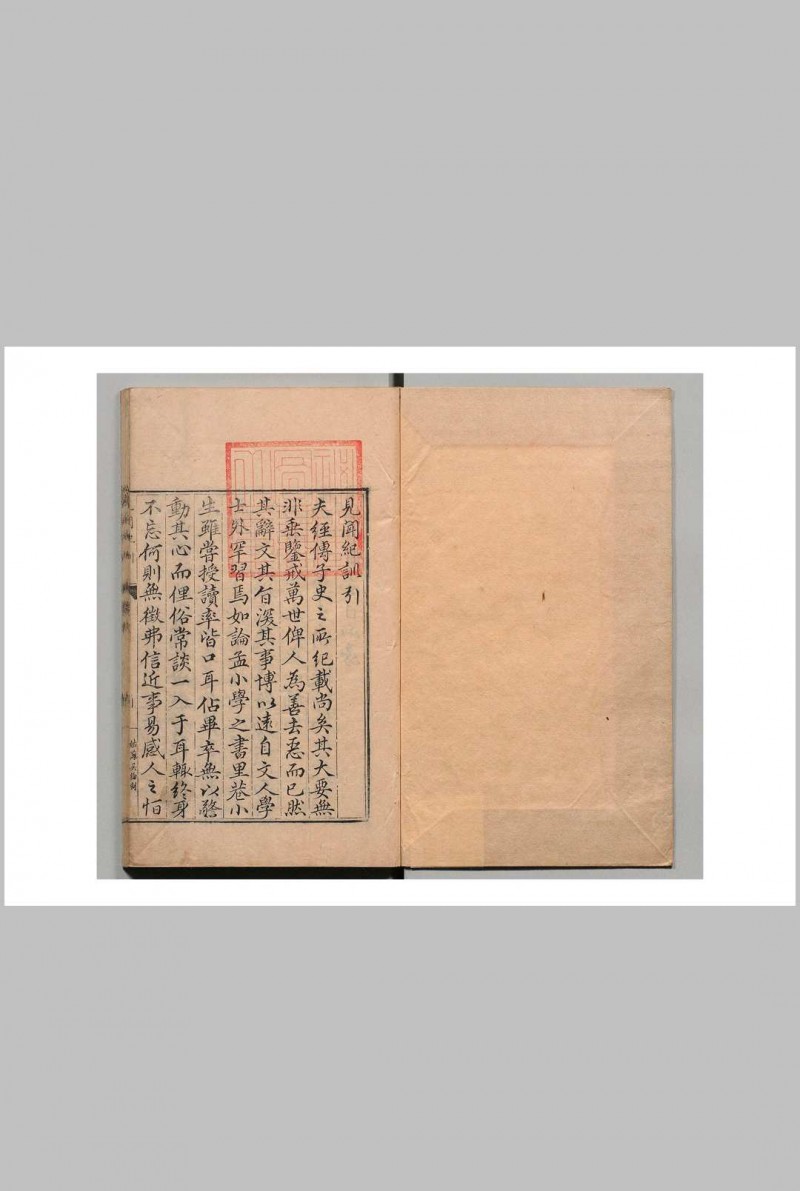 見聞紀訓引
夫經傳子史之所紀載尚矣其大要無
非垂鑒戒萬世俾人為善去惡而已然
其辭文其旨深其事博以遠自文人學
士外罕習焉如論孟小學之書里巷小
生雖嘗授讀率皆口耳佔畢卒無以警
動其心而俚俗常談一入于耳輒終身
不忘何則無徵弗信近事易感人之恒